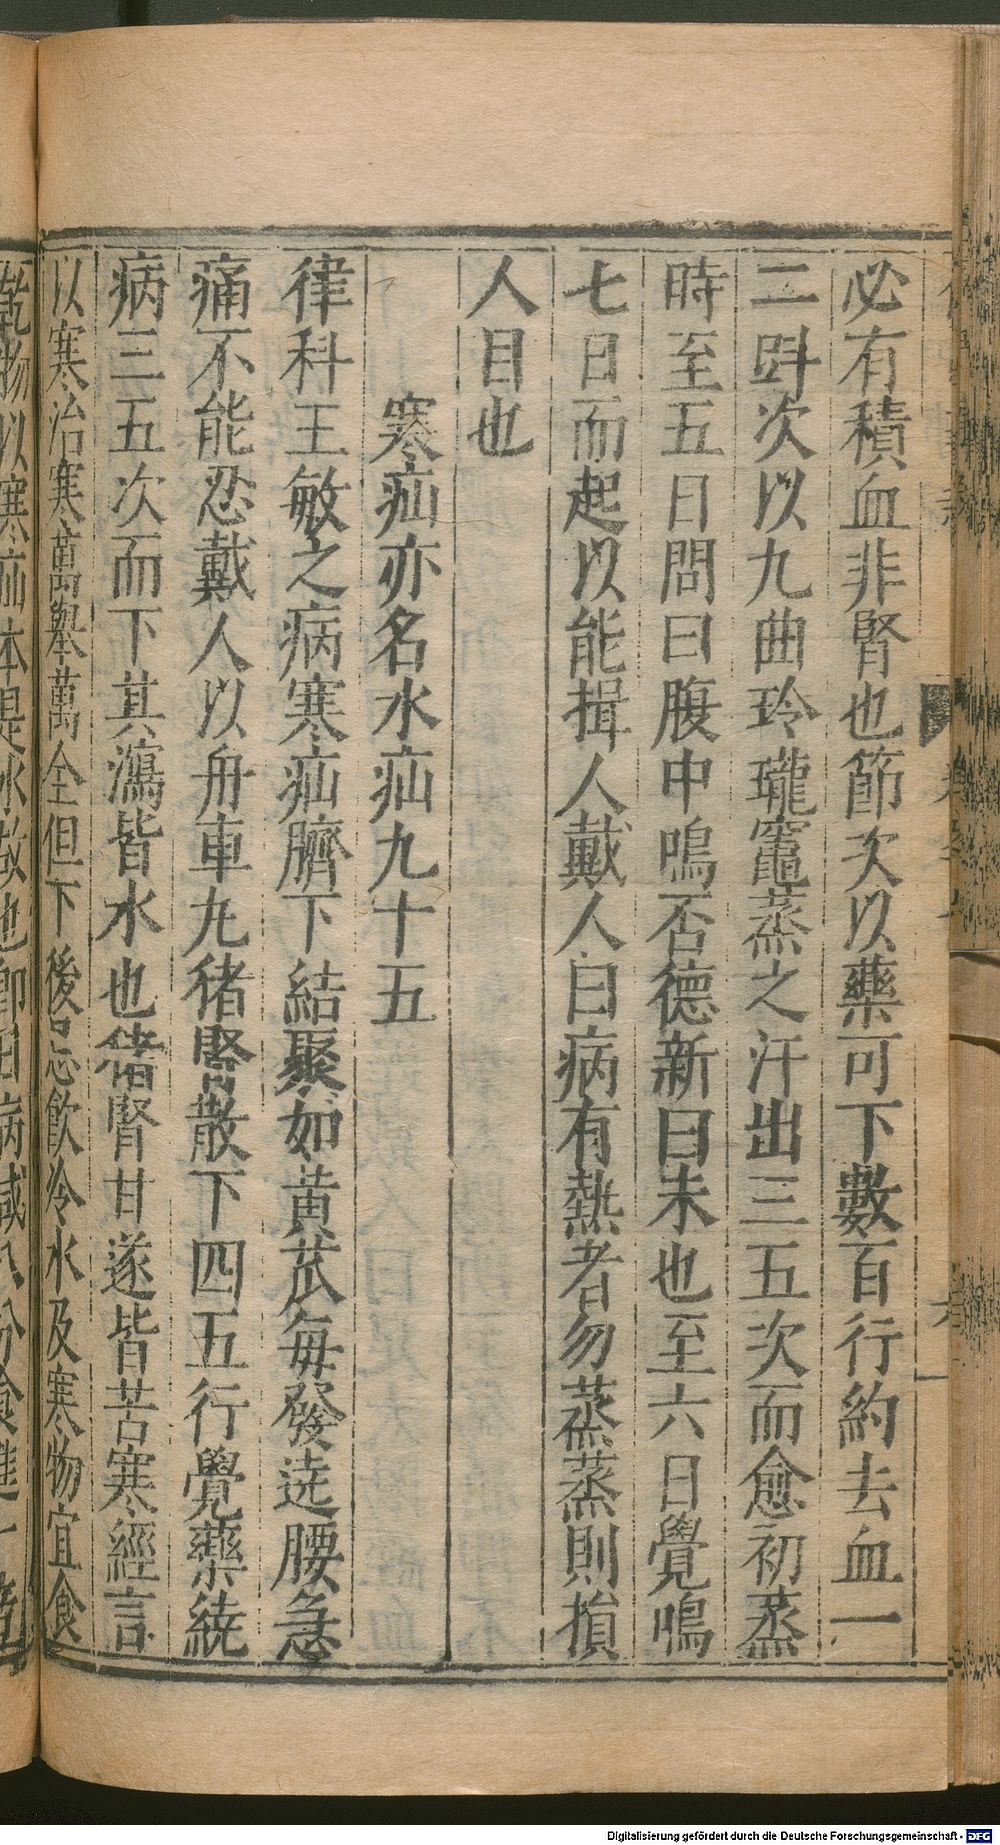 必有積血非腎也節次以藥可下數百行約去血一
二㪷次以九曲玲瓏竈蒸之汗出三五次而愈初蒸
時至五日問曰腹中鳴否德新曰未也至六日覺鳴
七日而起以能揖人戴人曰病有熱者勿蒸蒸則損
人目也
寒疝亦名水疝九十五
律科王敏之病寒疝臍下結聚如黃苽每發遶腰急
痛不能忍戴人以舟車丸猪腎散下四五行覺藥繞
病三五次而下其瀉皆水也猪腎甘遂皆苦寒經言
以寒治寒萬舉萬全但下後忌飲冷水及寒物宜食
Digitalisierung gefördert durch die Deutsche Forschungsgemeinschaft - DFG